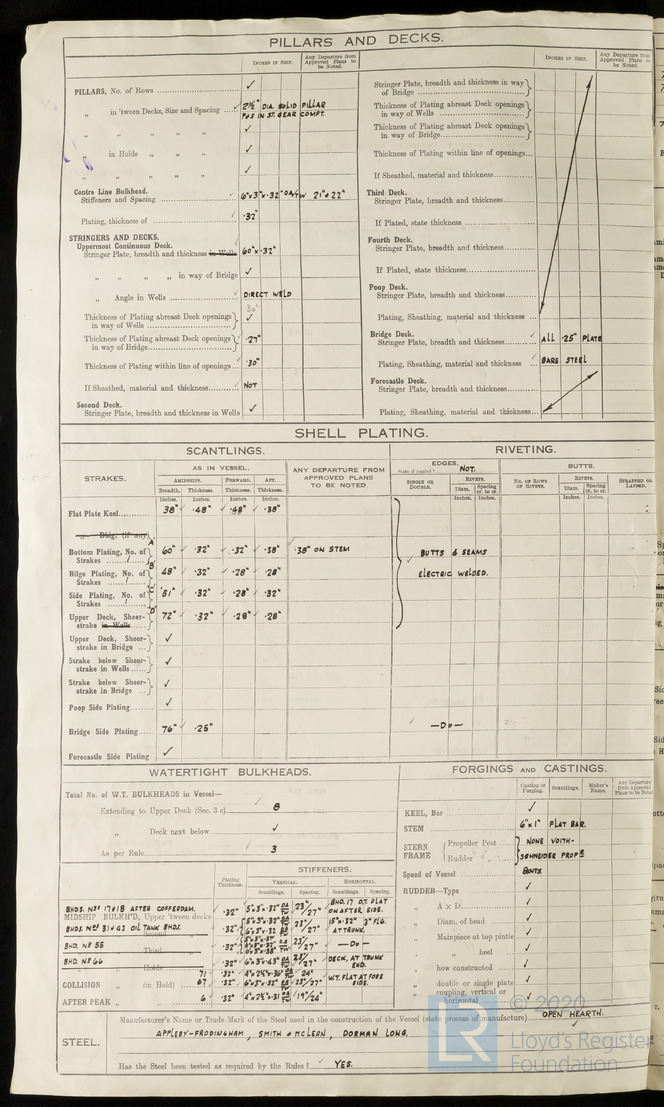 PILLARS AND DECKS.
INCHES IN SHIP.
Any Departure from Approved Plans to be Noted.
PILLARS, No. of Rows ✓
„ in 'tween Decks, Size and Spacing 2½" DIA. SOLID PILLAR
P&S IN ST. GEAR COMPT.
„ „ „ „ ✓
„ in Holds „ „ ✓
„ „ „ „ ✓
Centre Line Bulkhead.
Stiffeners and Spacing 6"x3"x.32" OA/TW 21" & 22"
Plating, thickness of .32"
STRINGERS AND DECKS.
Uppermost Continuous Deck.
Stringer Plate, breadth and thickness in Wells 60"x.32"
„ „ „ „ in way of Bridge ✓
„ Angle in Wells DIRECT WELD
Thickness of Plating abreast Deck openings in way of Wells ✓
Thickness of Plating abreast Deck openings in way of Bridge .27"
Thickness of Plating within line of openings .30"
If Sheathed, material and thickness NOT
Second Deck.
Stringer Plate, breadth and thickness in Wells ✓
INCHES IN SHIP.
Any Departure from Approved Plans to be Noted.
Stringer Plate, breadth and thickness in way of Bridge
Thickness of Plating abreast Deck openings in way of Wells
Thickness of Plating abreast Deck openings in way of Bridge
Thickness of Plating within line of openings
If Sheathed, material and thickness
Third Deck.
Stringer Plate, breadth and thickness
If Plated, state thickness
Fourth Deck.
Stringer Plate, breadth and thickness
If Plated, state thickness
Poop Deck.
Stringer Plate, breadth and thickness
Plating, Sheathing, material and thickness
Bridge Deck.
Stringer Plate, breadth and thickness ALL .25" PLATE
Plating, Sheathing, material and thickness BARE STEEL
Forecastle Deck.
Stringer Plate, breadth and thickness
Plating, Sheathing, material and thickness
SHELL PLATING.
SCANTLINGS.
RIVETING.
STRAKES.
AS IN VESSEL.
AMIDSHIPS. FORWARD. AFT.
Breadth. Thickness. Thickness. Thickness.
Inches. Inches. Inches. Inches.
ANY DEPARTURE FROM APPROVED PLANS TO BE NOTED
EDGES.
NOT.
SINGLE OR DOUBLE.
RIVETS.
Diam. Spacing cr. to cr.
Inches. Inches.
BUTTS.
No. OF ROWS OF RIVETS.
RIVETS.
Diam. Spacing cr. to cr.
Inches. Inches.
STRAPPED OR LAPPED.
Flat Plate Keel 38" .48" .48" .38"
„ Dblg. (if any)
A
Bottom Plating, No. of Strakes 1 60" .32" .32" .38" .38" ON STEM
BUTTS & SEAMS
B
Bilge Plating, No. of Strakes 1 48" .32" .28" .28"
ELECTRIC WELDED.
C
Side Plating, No. of Strakes 1 51" .32" .28" .32"
D
Upper Deck, Sheerstrake in Wells 72" .32" .28" .28"
Upper Deck, Sheerstrake in Bridge ✓
Strake below Sheerstrake in Wells ✓
Strake below Sheerstrake in Bridge ✓
Poop Side Plating ✓
Bridge Side Plating 76" .25" —Do—
Forecastle Side Plating ✓
WATERTIGHT BULKHEADS.
Total No. of W.T. BULKHEADS in Vessel—
Extending to Upper Deck (Sec. 3 c) 8
„ Deck next below ✓
As per Rule 3
Plating Thickness.
STIFFENERS.
VERTICAL. HORIZONTAL.
Scantlings. Spacing. Scantlings. Spacing.
BHDS. Nos 17 & 18 AFTER COFFERDAM. .32" 5"x3"x.32" OA/TW 23"/27" BHD. 17 O.T. FLAT ON AFTER SIDE.
MIDSHIP BULKH'D, Upper 'tween decks
BHDS. Nos 31 & 43 OIL TANK BHDS. .32" 23"/27" 15"x.32" 3" FLG. AT TRUNK.
Second
BHD. No 55 .32" 23"/27" —Do—
Third
BHD. No 66 .32" 6"x3"x.43" OA/TW 23"/27" DECK, AT TRUNK END.
Holds
71 .32" 24"
COLLISION „ (in Hold) 67 .32" 6"x3"x.32" OA/TW 23"/27" W.T. FLAT AT FORE SIDE.
AFTER PEAK „ „ 6 .32" 4"x2½"x.31 OA/TW 19"/24"
FORGINGS AND CASTINGS.
Casting or Forging. Scantlings. Maker's Name. Any Departure from Approved Plans to be Noted
KEEL, Bar ✓
STEM 6"x1" FLAT BAR.
STERN FRAME Propeller Post NONE VOITH-
Rudder „ SCHNEIDER PROPS
Speed of Vessel 8 KNTS.
RUDDER—Type ✓
„ A x D ✓
„ Diam. of head ✓
„ Mainpiece at top pintle ✓
„ „ heel ✓
„ how constructed ✓
„ double or single plate ✓
„ coupling, vertical or horizontal ✓
STEEL.
Manufacturer's Name or Trade Mark of the Steel used in the construction of the Vessel (state process of manufacture) OPEN HEARTH.
APPLEBY-FRODINGHAM, SMITH & McLEAN, DORMAN LONG.
Has the Steel been tested as required by the Rules? YES.
© 2020
LR
Lloyd's Register
Foundation